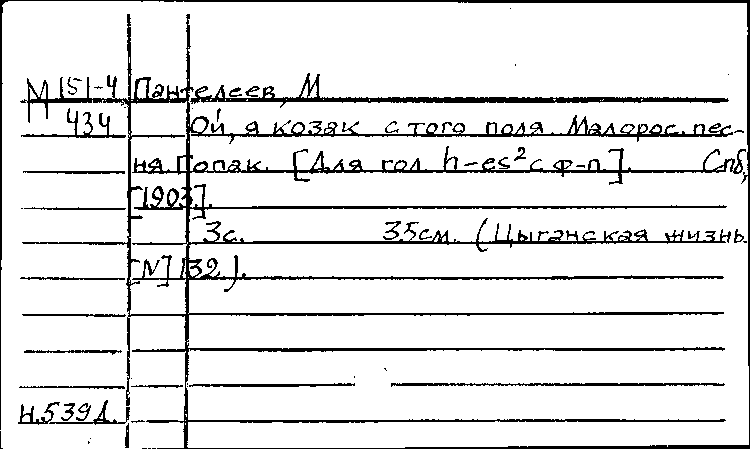 М 151-4 Пантелеев, М
434 Ой, я козак с того поля. Малорос. пес-
ня. Гопак. [Для гол. h-es² с ф-п.]. Спб,
[1903].
3с. 35см. (Цыганская жизнь.
[N] 132).
н.539д.